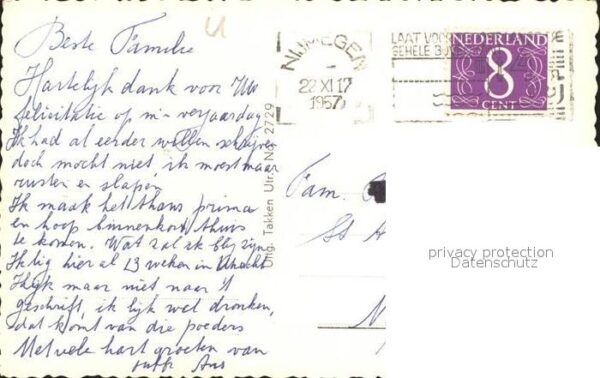 Beste Familie
Hartelijk dank voor Uw
felicitatie op m'n verjaardag
Ik had al eerder willen schrijven
doch mocht niet, ik moest maar
rusten en slapen
Ik maak het thans prima
en hoop binnenkort thuis
te komen. Wat zal ik blij zijn
Ik lig hier al 13 weken in Utrecht
Kijk maar niet naar 't
geschrift, ik lijk wel dronken,
dat komt van die poeders
Met vele hart groeten van
Ans
Uitg. Takken Utr. Nr. 2729
NIJMEGEN
22 XI 17
1957
LAAT VOOR
GEHELE
NEDERLAND
8
CENT
Fam.
St
privacy protection
Datenschutz